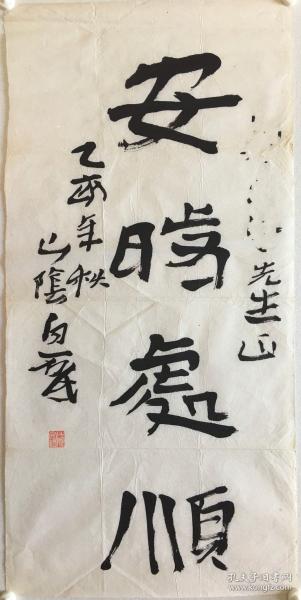 安時處順
先生正
乙亥年秋
山陰白
孔夫子旧书网